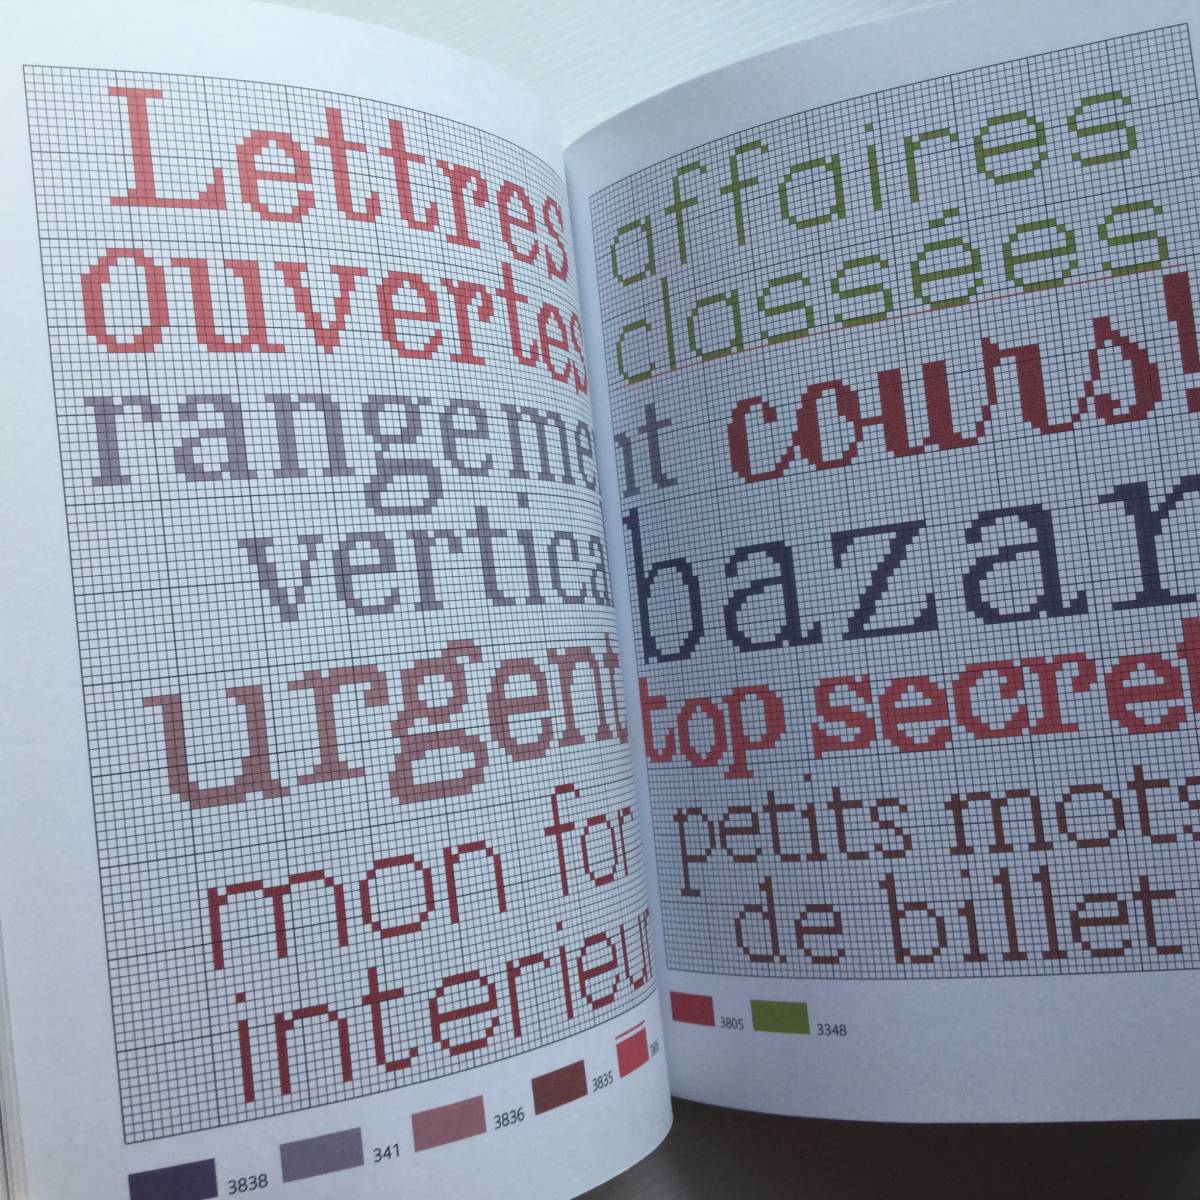 Lettres
ouvertes
rangement
vertical
urgent
mon for
interieur
3838
341
3836
3835
affaires
classées
cours!
bazar
top secret
petits mots
de billet
3805
3348